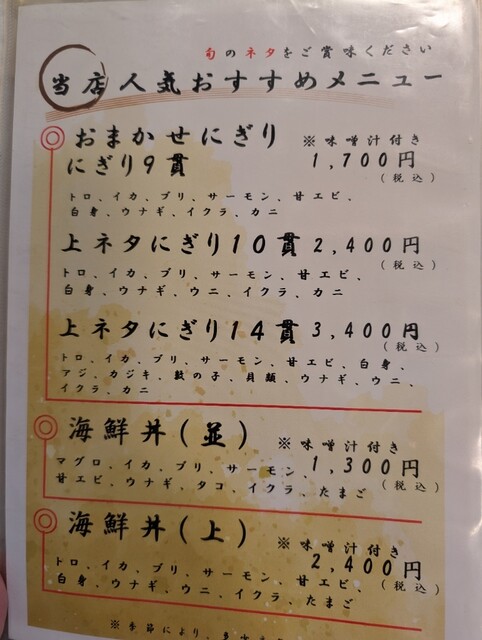 旬のネタをご賞味ください
当店人気おすすめメニュー
おまかせにぎり ※味噌汁付き
にぎり9貫 1,700円
(税込)
トロ、イカ、ブリ、サーモン、甘エビ、
白身、ウナギ、イクラ、カニ
上ネタにぎり10貫 2,400円
(税込)
トロ、イカ、ブリ、サーモン、甘エビ、
白身、ウナギ、ウニ、イクラ、カニ
上ネタにぎり14貫 3,400円
(税込)
トロ、イカ、ブリ、サーモン、甘エビ、白身、
アジ、カジキ、数の子、貝類、ウナギ、ウニ、
イクラ、カニ
海鮮丼(並) ※味噌汁付き
1,300円
マグロ、イカ、ブリ、サーモン、
(税込)
甘エビ、ウナギ、タコ、イクラ、たまご
海鮮丼(上) ※味噌汁付き
2,400円
トロ、イカ、ブリ、サーモン、甘エビ、
(税込)
白身、ウナギ、ウニ、イクラ、たまご
※季節により、多少